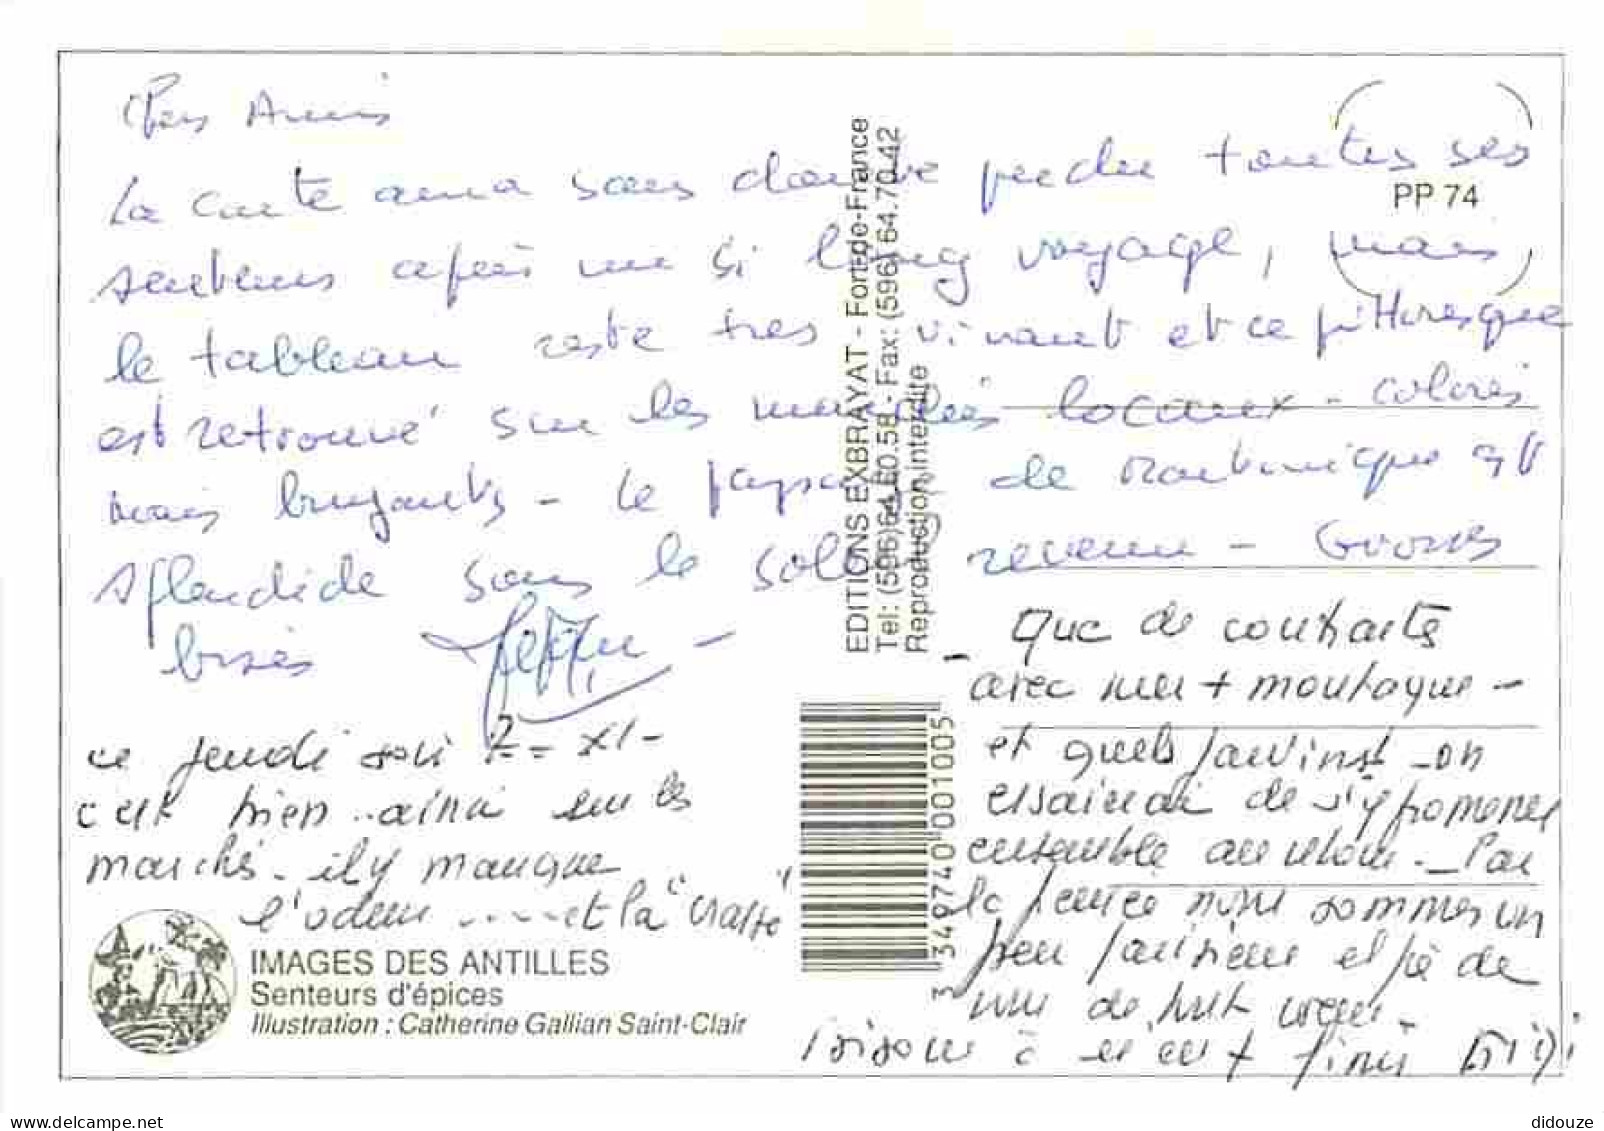 Chers Amis
La carte aura sans doute perdu toutes ses
senteurs après un si long voyage, mais
le tableau reste très vivant et ce pittoresque
est retrouvé sur les marchés locaux - colorés
mais bruyants - Le paysage de Martinique est
splendide sous le soleil revenu - Grosses
bises
ce jeudi soir 7 - XI -
c'est bien .. ainsi sur les
marchés - il y manque
l'odeur ...... et la "crasse"
IMAGES DES ANTILLES
Senteurs d'épices
Illustration : Catherine Gallian Saint-Clair
EDITIONS EXBRAYAT - Fort-de-France
Tel: (596) 64.60.58 - Fax: (596) 64.70.42
Reproduction interdite
3 49740 001005
PP 74
Que de contrastes
avec mer + montagne -
et quels jardins! - on
essaierai de s'y promener
ensemble au retour - Par
la pensée nous sommes un
peu
de
bisous à
didouze